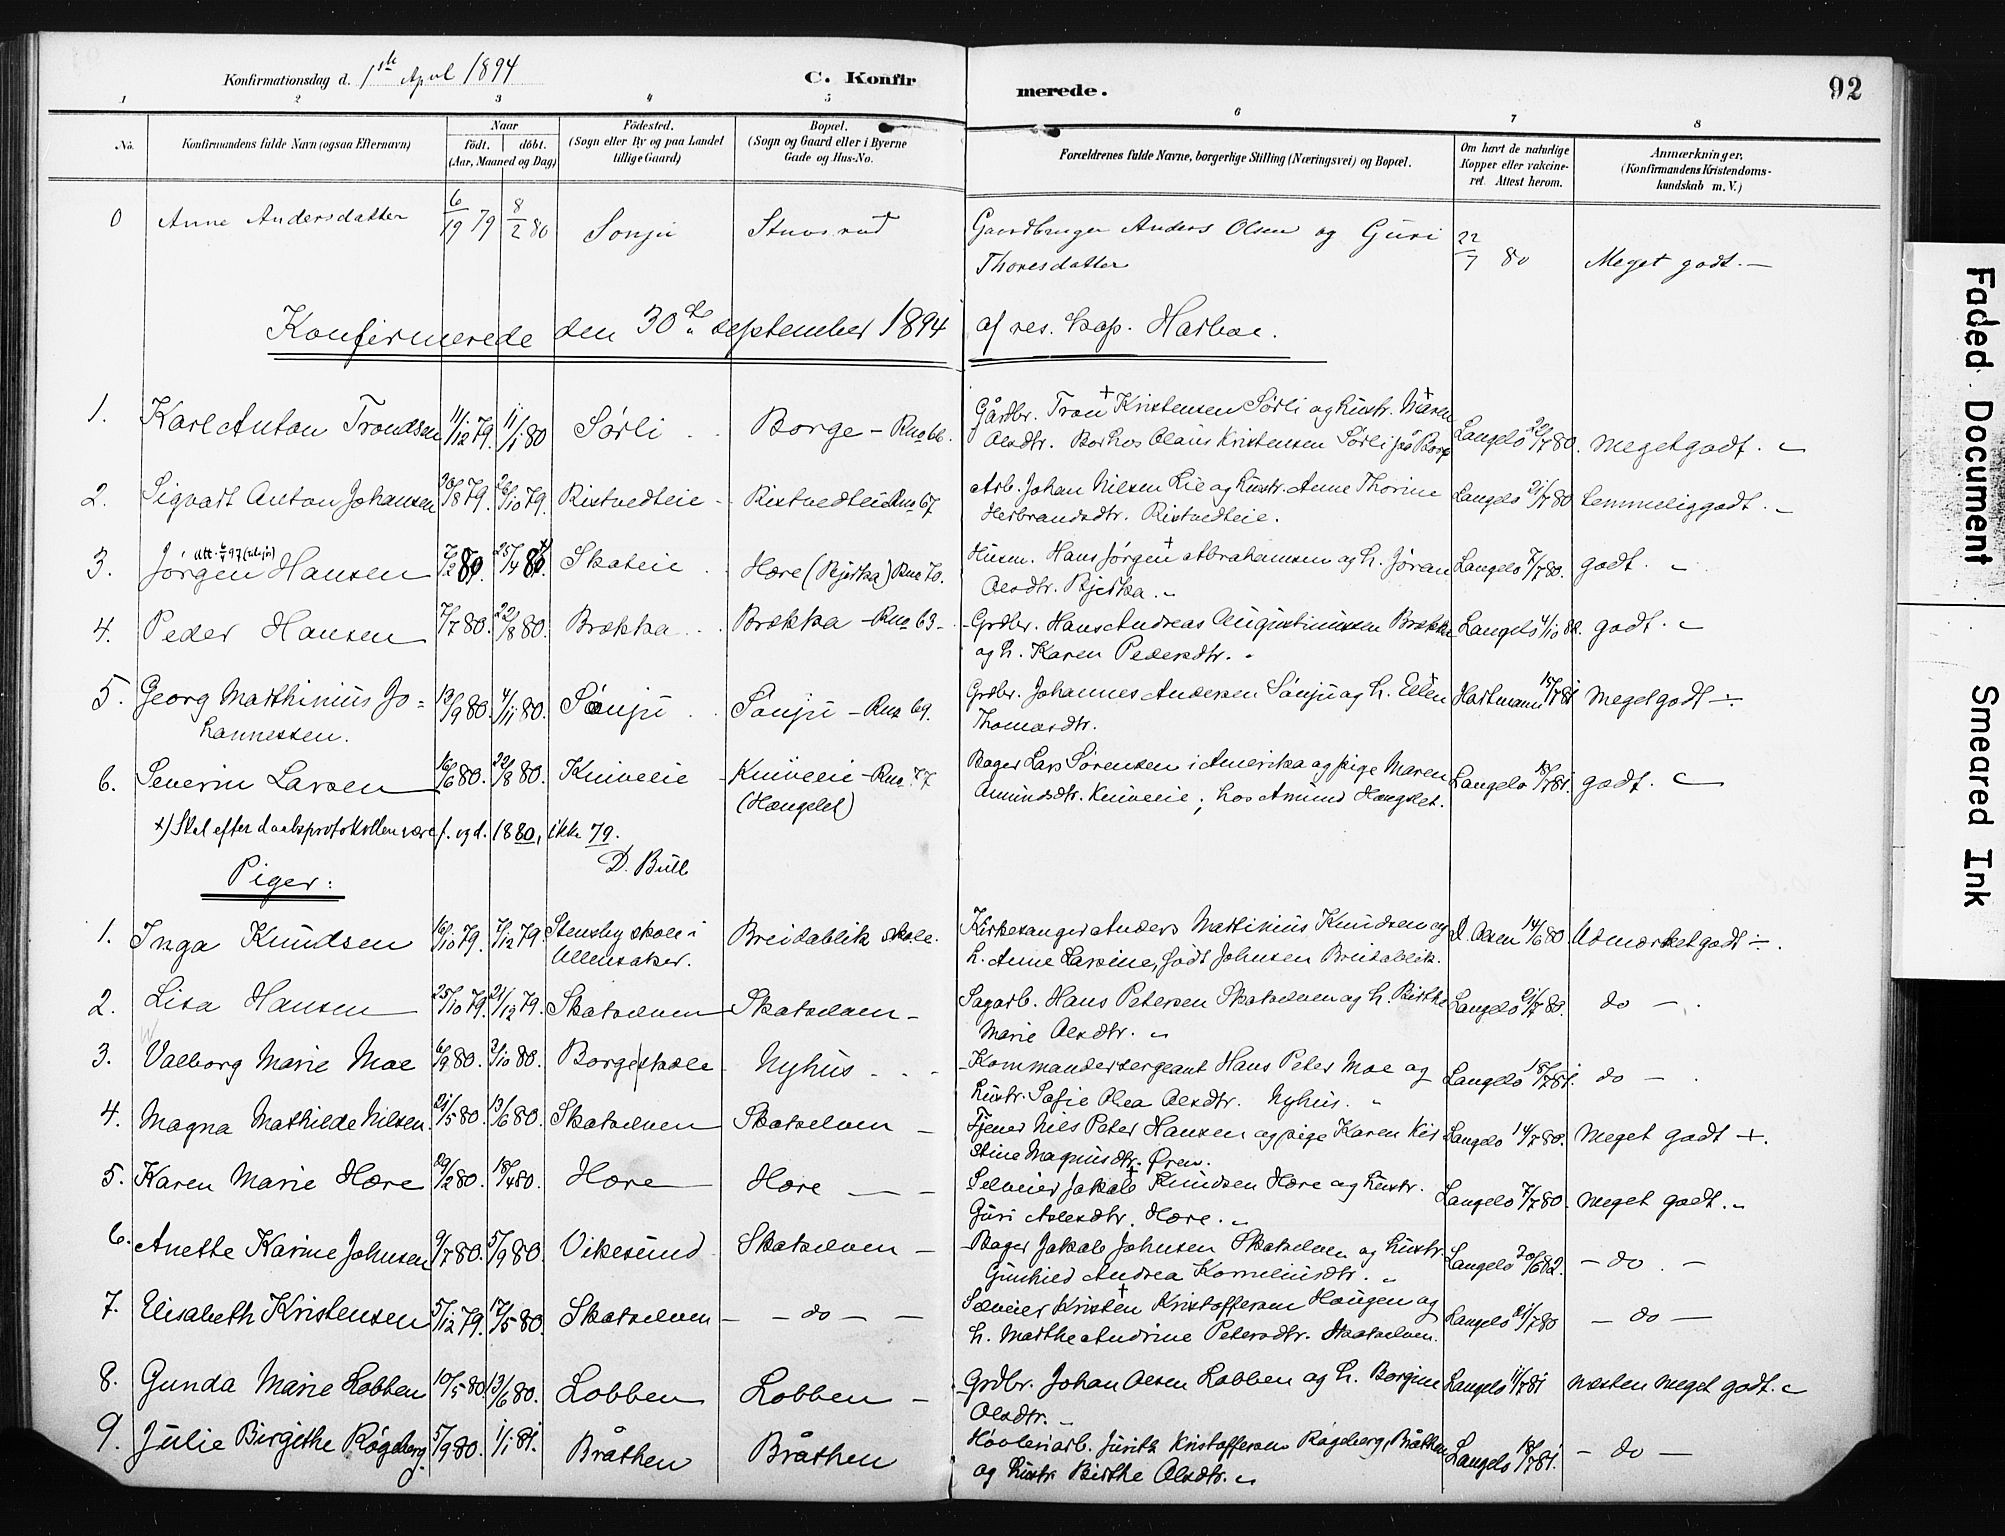 Konfirmationsdag d. 1ste April 1894
C. Konfirmerede.
92
1 2 3 4 5 6 7 8
No.
Konfirmandens fulde Navn (ogsaa Efternavn)
Naar
født. døbt.
(Aar, Maaned og Dag)
Fødested.
(Sogn eller By og paa Landet
tillige Gaard)
Bopæl.
(Sogn og Gaard eller i Byerne
Gade og Hus-No.
Forældrenes fulde Navne, borgerlige Stilling (Næringsvei) og Bopæl.
Om havt de naturlige
Kopper eller vakcine-
ret. Attest herom.
Anmærkninger.
(Konfirmandens Kristendoms-
kundskab m. V.)
0 Anne Andersdatter 6/19 79 8/2 80 Sonju Stuvsrud Gaardbruger Anders Olsen og Guri 22/7 80 Meget godt. —
Thoresdatter
Konfirmerede den 30te september 1894 af res. kap. Harboe.
1. Karl Anton Trondsen 11/12 79. 11/1 80 Sørli Borge - Rno 66. Gårdbr. Tron + Kristensen Sørli og hustr. Maren +
Olsdtr. Bor hos Olaus Kristensen Sørli på Borge Langelo 22/7 80. meget godt.
2. Sigvart Anton Johansen 20/8 79. 26/10 79. Ristvedteie Ristvedteie Rno 67 Arb. Johan Nilsen Lie og hustr. Anne Thorine Langelo 21/7 80 temmelig godt.
Herbrandsdtr. Ristvedteie.
3. Jørgen Hansen 7/2 80. 25/4 80. x) Skateie Hære (Bjerka) Rno 70. Husm. Hans Jørgen + Abrahamsen og h. Jøran Langelo 7/7 80. godt.
Olsdtr. Bjerka.
4. Peder Hansen 7/7 80. 22/8 80. Brekka Brekka - Rno 63 - Grdbr. Hans Andreas Augustinussen Brekka Langelo 4/10 82. godt.
og h. Karen Pedersdtr.
5. Georg Marthinius Jo= 13/9 80. 4/11 80. Sønju Sønju - Rno 69. Grdbr. Johannes Andersen Sønju og h. Ellen Hartmann 15/7 81 meget godt ÷.
hannessen. Thomasdtr.
6. Severin Larsen 16/6 80. 22/8 80. Kniveeie Kniveeie - Rno. 77 Bager Lars Sørensen i Amerika og pige Maren Langelo 18/7 81. godt.
(Hængslet) Amundsdtr. Kniveeie; hos Amund Hængslet.
x) Skal efter daabsprotokollen være f. og d. 1880, ikke 79.
D. Bull
Piger:
1. Inga Knudsen 16/10 79. 7/12 79. Stensby skole i Breidablik skole. Kirkesanger Anders Martinius Knudsen og D. Olsen 14/6 80. Udmærket godt ÷.
Ullensaker. h. Anne Larsine, født Johnsen Breidablik.
2. Lisa Hansen 25/10 79. 21/12 79. Skatselven Skatselven - Sagarb. Hans Petersen Skatselven og h. Birthe Langelo 21/7 80. do —
Marie Olsdtr.
3. Valborg Marie Moe 6/9 80. 3/10 80. Borge skole Nyhus Kommandersergeant Hans Peter Moe og Langelo 18/7 81. do —
hustr. Sofie Olea Olsdtr. Nyhus.
4. Magna Mathilde Nilsen 21/5 80. 13/6 80. Skatselven Skatselven - Tjener Nils Peter Hansen og pige Karen Kir Langelo 14/7 80. Meget godt +.
stine Magnusdtr. Øren.
5. Karen Marie Hære 29/2 80. 18/4 80. Hære Hære — Selveier Jakob + Knudsen Hære og hustr. Langelo 7/7 80. meget godt.
Guri Aslesdtr. Hære.
6. Anette Karine Johnsen 9/7 80. 5/9 80. Vikesund Skatselven - Bager Jakob Johnsen Skatselven og hustr. Langelo 20/6 82. — do —
Gunhild Andrea Korneliusdtr.
7. Elisabeth Kristensen 5/12 79. 17/5 80. Skatselven — do — Selveier Kristen + Kristoffersen Haugen og Langelo 21/7 80 — do —
h. Marthe Andrine Petersdtr. Skatselven.
8. Gunda Marie Lobben 10/5 80 13/6 80. Lobben Lobben - Grdbr. Johan Olsen Lobben og h. Borgine Langelo 11/7 81 næsten meget godt.
Olsdtr.
9. Julie Birgithe Røgeberg. 5/9 80. 1/1 81. Bråthen Bråthen Høvleriarb. Jurith Kristoffersen Røgeberg, Bråthen Langelo 18/7 81. — do —
og hustr Birthe Olsdtr.
Faded Document
Smeared Ink